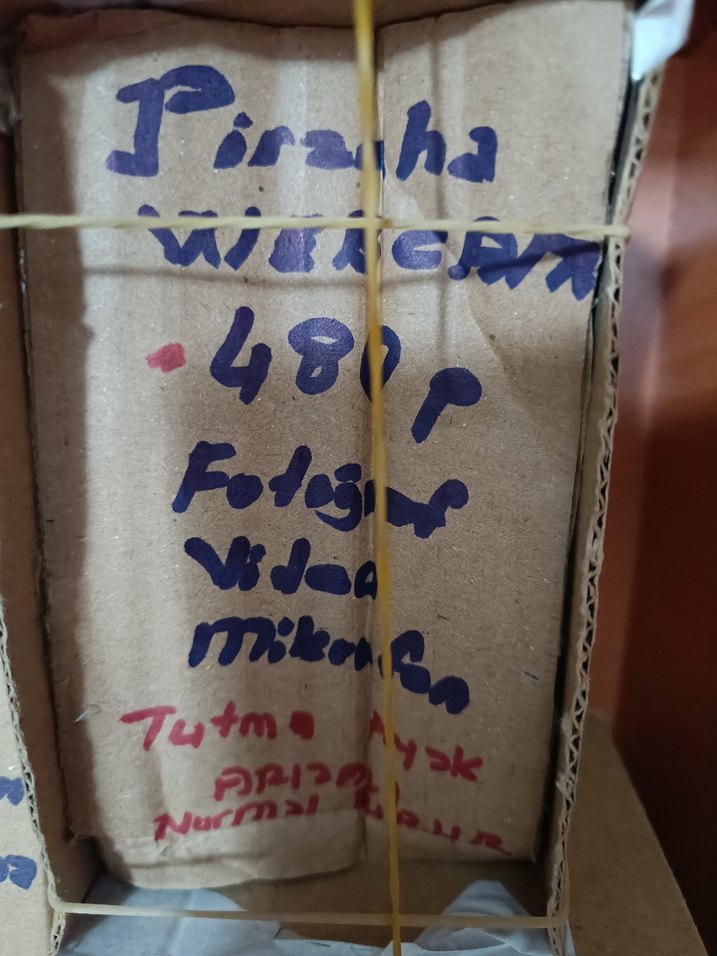 Piranha
WEBCAM
480p
Fotoğraf
Video
Mikrofon
Tutma Ayak
Normal